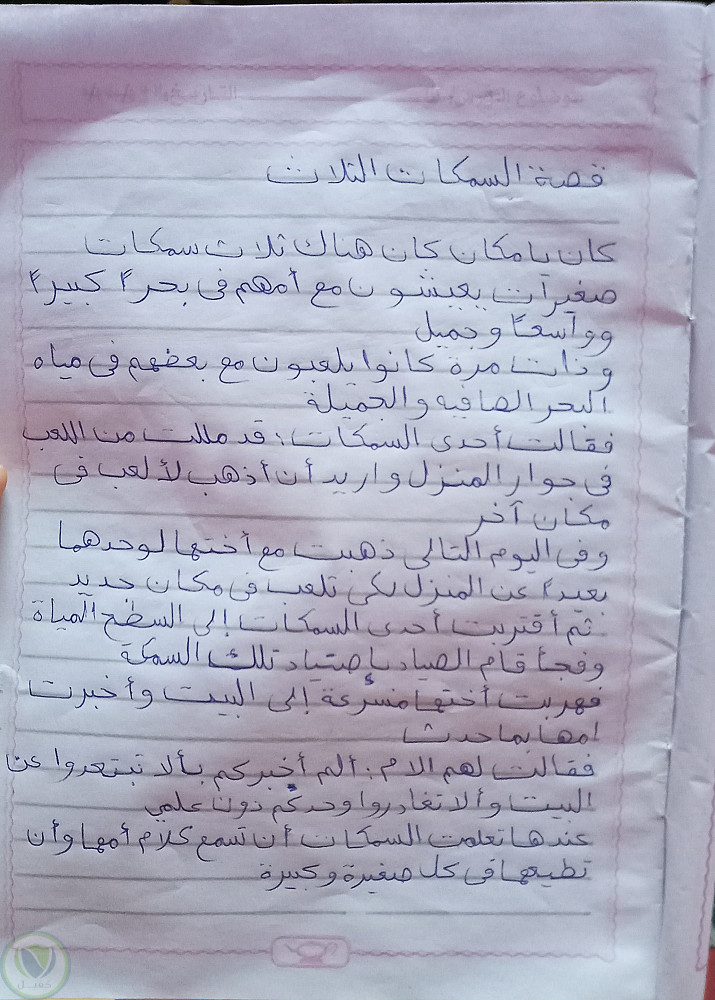 موضوع الدرس/
التاريخ
قصة السمكات الثلاث
كان يا مكان كان هناك ثلاث سمكات
صغيرات يعيشون مع أمهم فى بحرً كبيرً
وواسعًا وجميل
وذات مرة كانوا يلعبون مع بعضهم فى مياه
البحر الصافيه والجميلة
فقالت أحدى السمكات: قد مللت من اللعب
فى جوار المنزل واريد أن أذهب لألعب فى
مكان آخر
وفى اليوم التالى ذهبت مع أختها لوحدهما
بعيدً عن المنزل لكى تلعب فى مكان جديد
ثم أقتربت أحدى السمكات إلى السطح المياة
وفجأ قام الصياد بإصتياد تلك السمكة
فهربت أختها مسرعة إلى البيت وأخبرت
امها بما حدث
فقالت لهم الام: ألم أخبركم بألا تبتعدوا عن
البيت وألا تغادروا وحدكم دون علمي
عندها تعلمت السمكات أن تسمع كلام أمها وأن
تطيعها فى كل صغيرة وكبيرة
كفيل